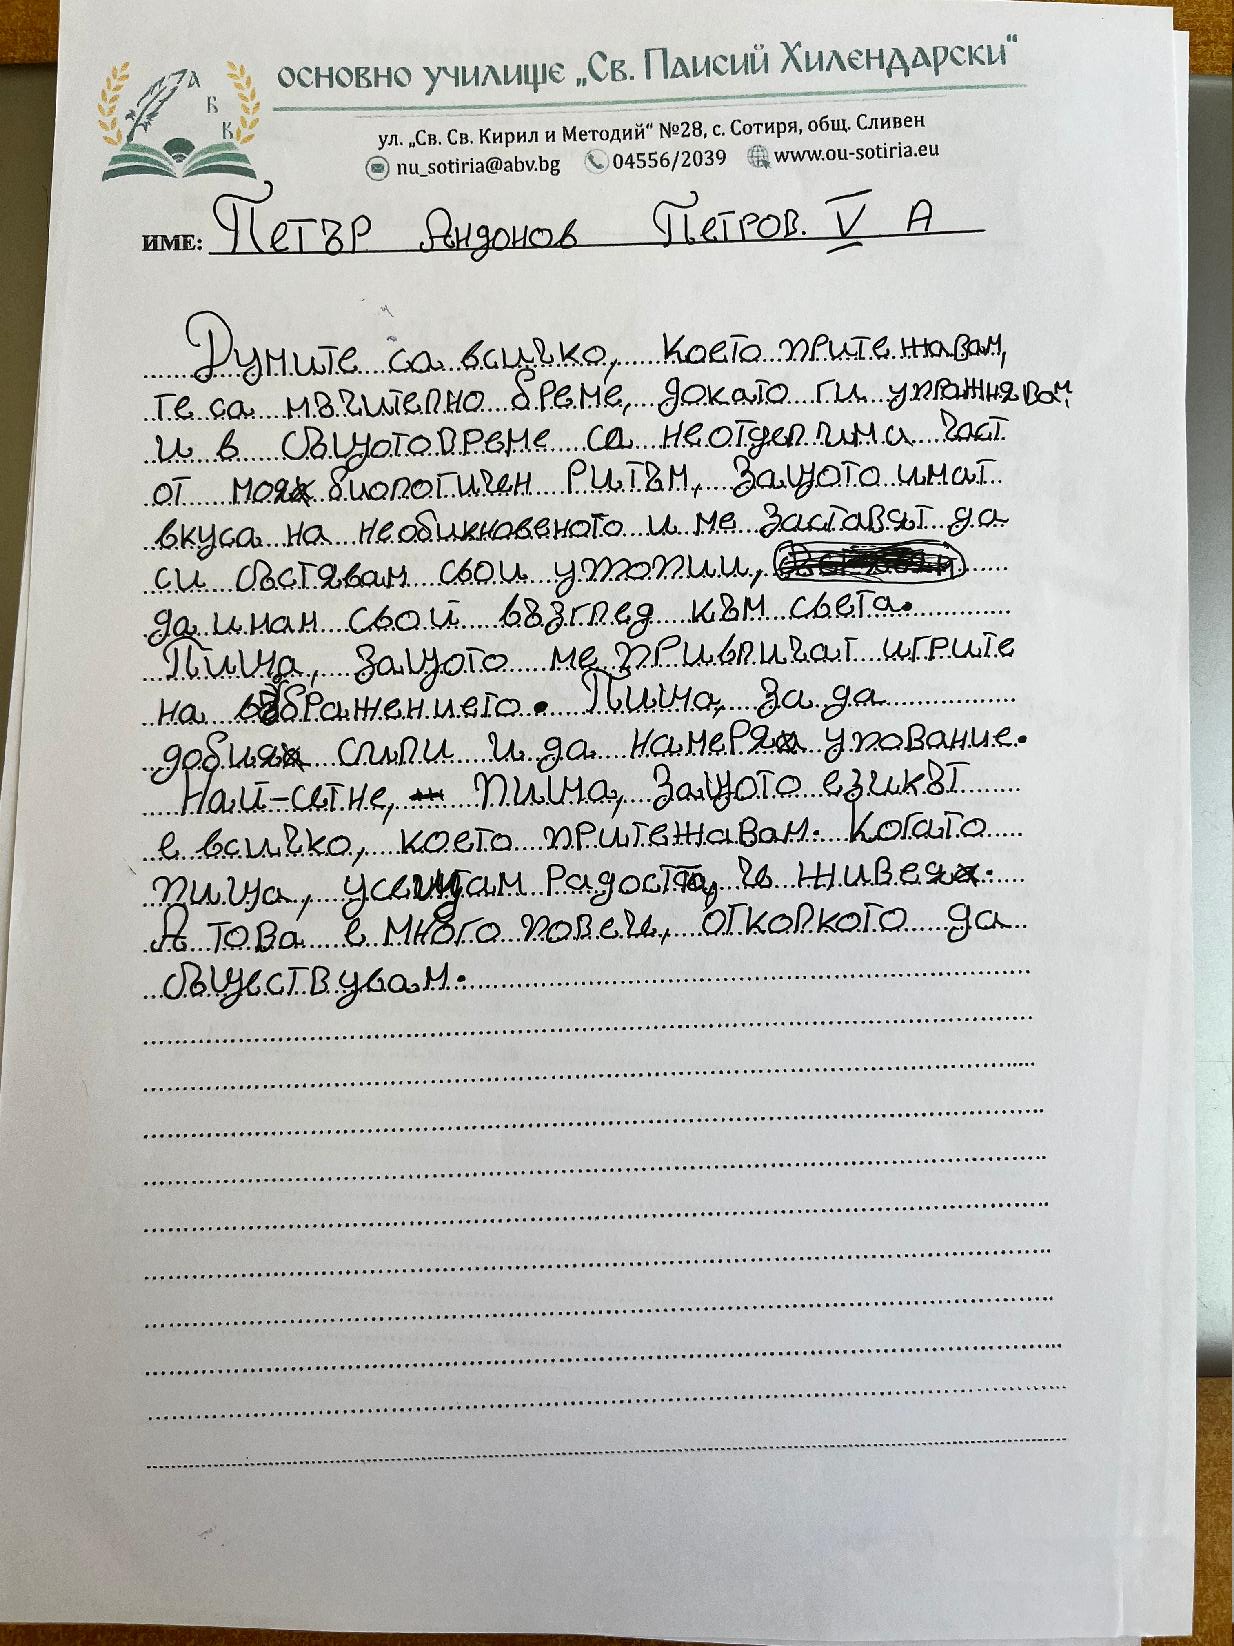 А
Б
В
основно училище „Св. Паисий Хилендарски“
ул. „Св. Св. Кирил и Методий“ №28, с. Сотиря, общ. Сливен
nu_sotiria@abv.bg 04556/2039 www.ou-sotiria.eu
ИМЕ: Петър Андонов Петров. V А
Думите са всичко, което притежавам,
те са мъчително бреме, докато ги упражнявам,
и в същотовреме са неотделима част
от моя биологичен ритъм, защото имат
вкуса на необикновеното и ме заставят да
си съствям свои утопии,
да иман свой възглед към света.
Пиша, защото ме привличат игрите
на въбражението. Пиша, за да
добия сили и да намеря упование.
Най-сетне, пиша, защото езикът
е всичко, което притежавам. Когато
пиша, усещам радостта, че живея.
А това е много повече, отколкото да
съществувам.